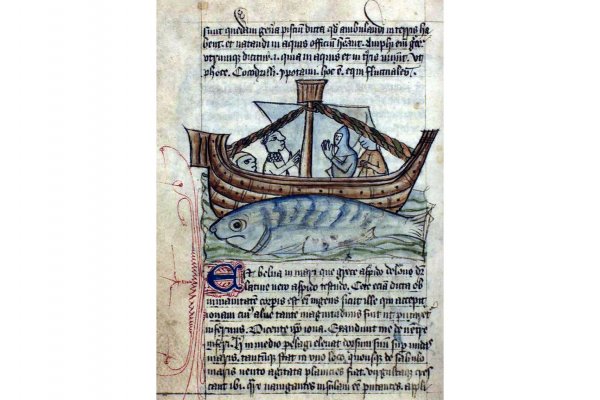 sunt quedam gen̄a pisciū dicta qđ ambulandi in terris ha
bent. et natandi in aquis officiū hēant. Amphi em̄ gre
utrumque dicitur .i. quia in aquis et in tr̄is uiuūt. Vt
phoce. Cocodrilli. ypotami. hoc ē. equi fluctuales.
Est belua in mari que grece aspido delone dr̄
latine vero aspido testudo. Cete eciā dicta ob
inmanitatem corpis est eī ingens sicut ille qui accepit
ionam cuī alvus tante magnitudinis fuit ut putaret
infernus. Dicente ipō iona. Exaudivit me de ventre
inferi. in medio pelagi elevat dorsum suū sup undas
maris. tantumque stat in uno loco. quousque de sabulo
maris vento agitata planicies fiat. virgultaque cres
cant ibi. navigantes insulam eē putantes. appli